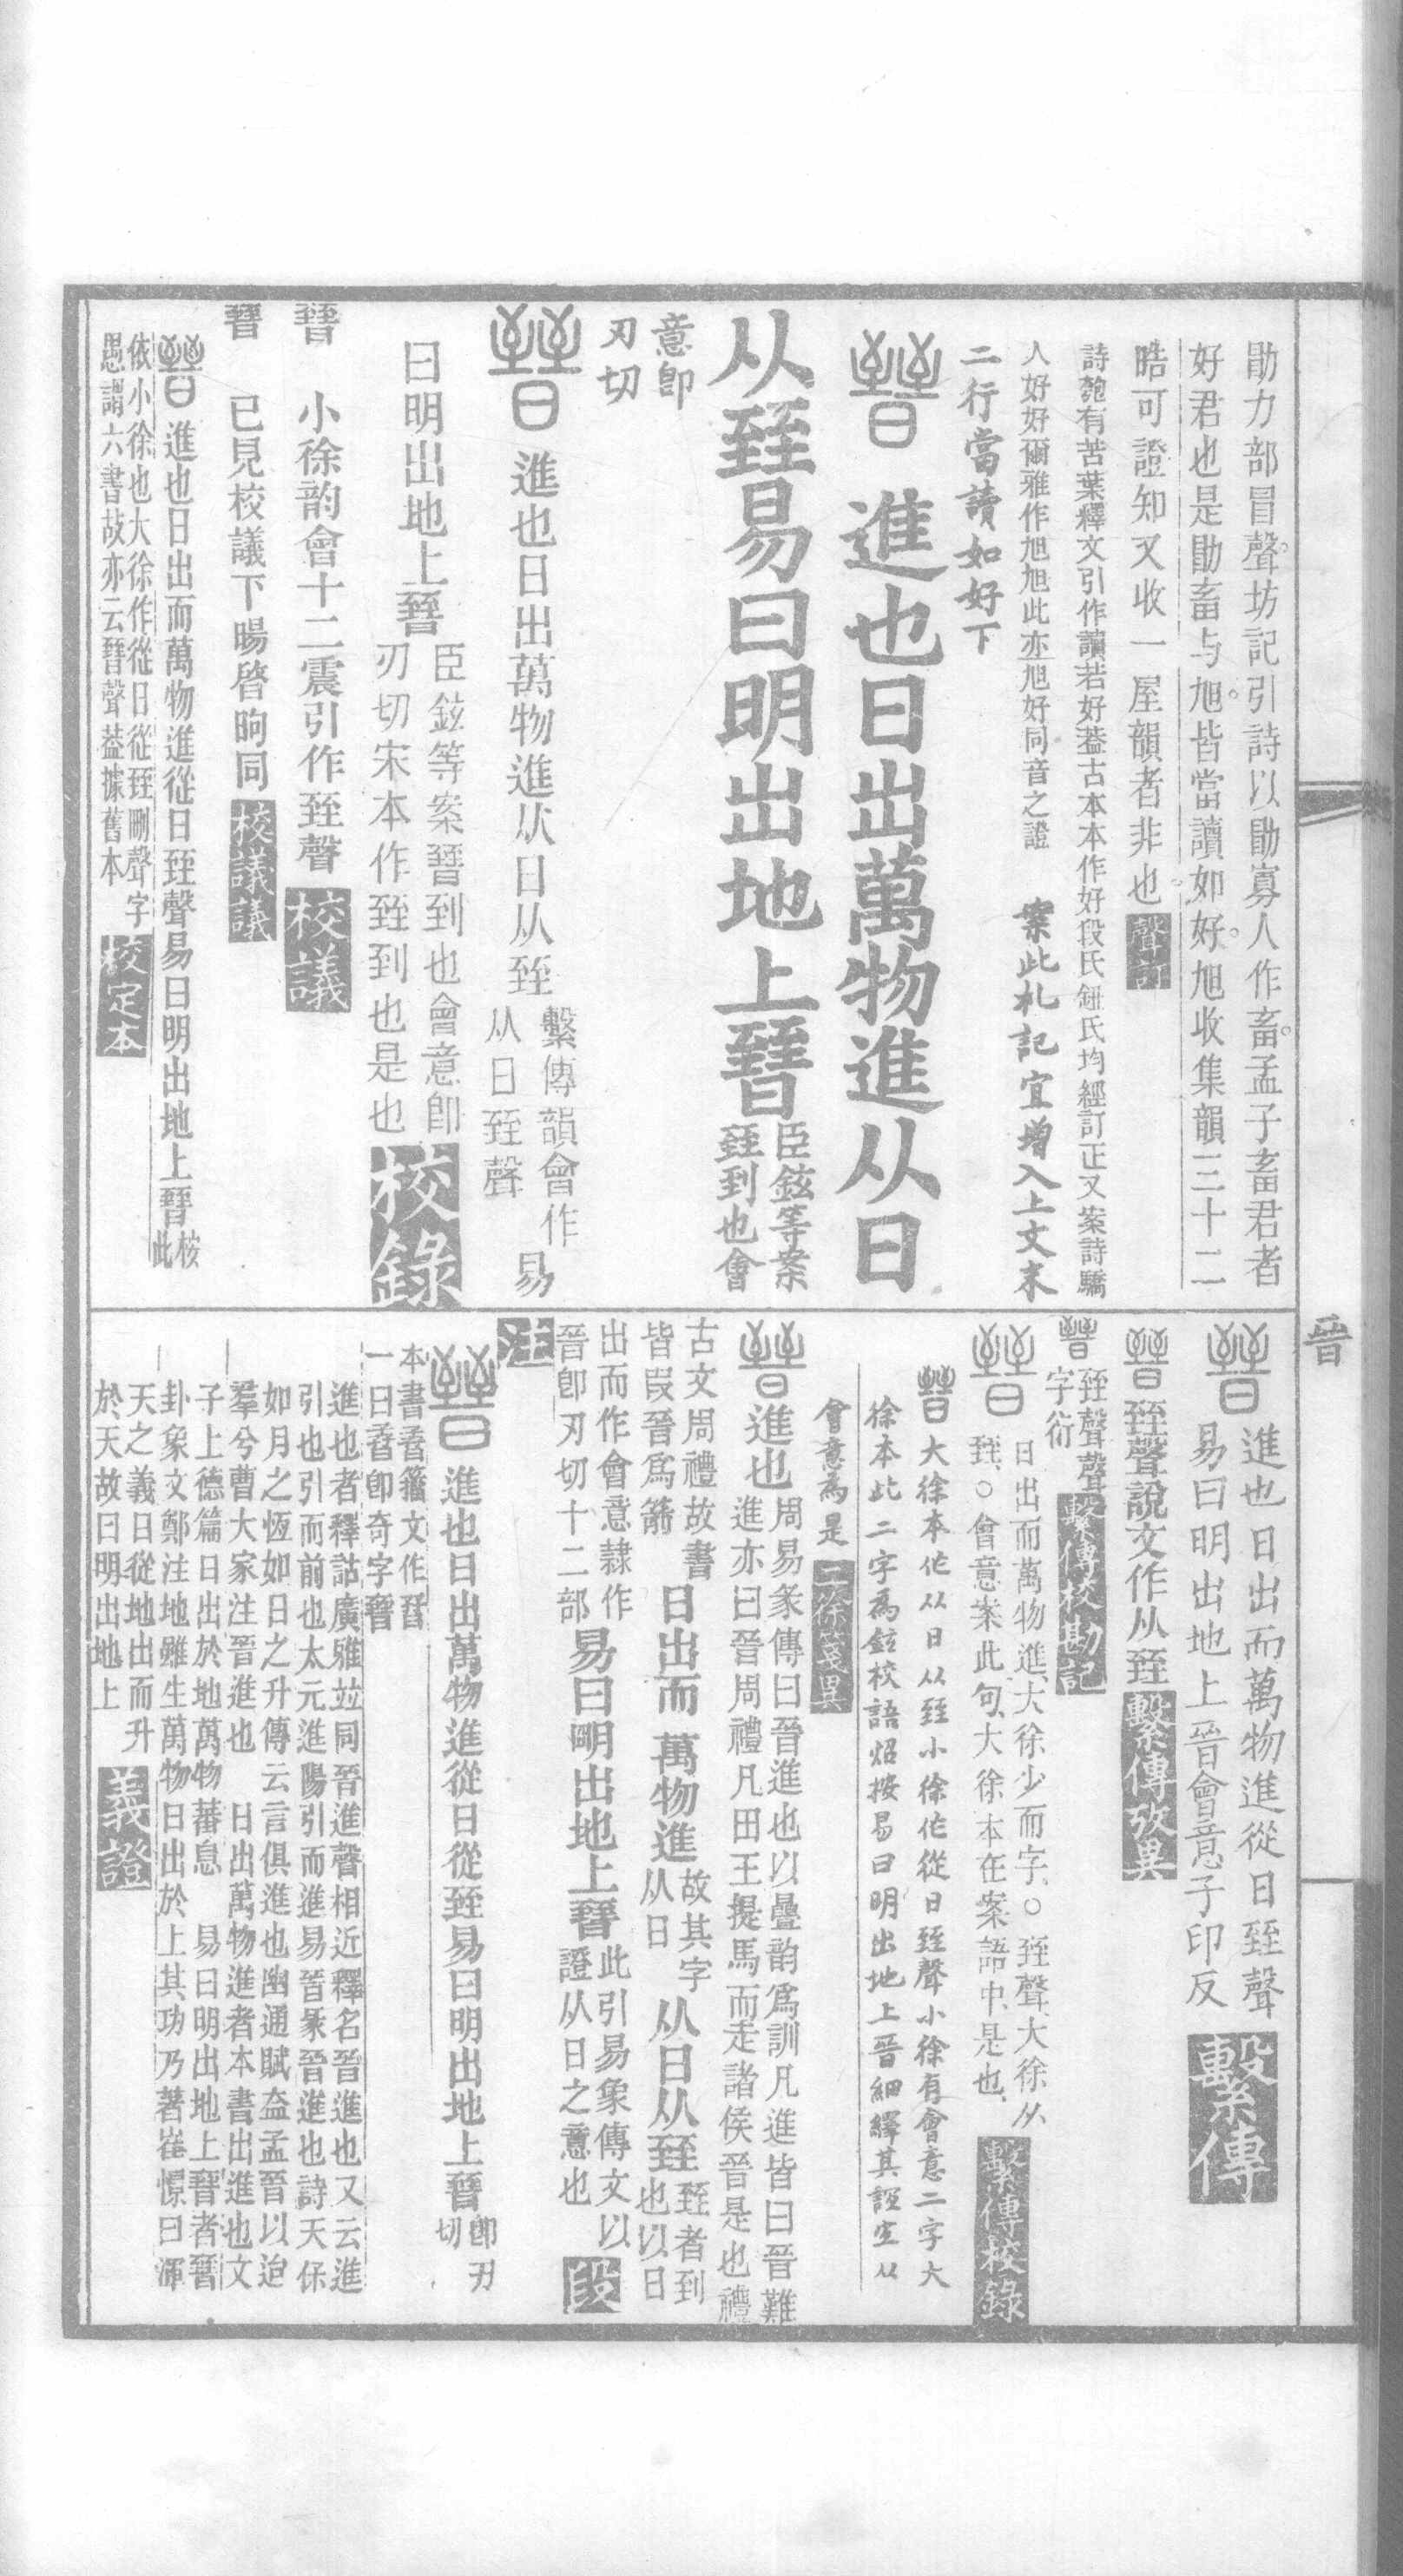 勖力部冒聲坊記引詩以勖寡人作畜孟子畜君者
好君也是勖畜与旭皆當讀如好旭收集韻三十二
晧可證知又收一屋韻者非也 聲訂
詩匏有苦葉釋文引作讀若好葢古本本作好段氏鈕氏均經訂正又案詩驕
人好好爾雅作旭旭此亦旭好同音之證 案此札記宜增入上文末
二行當讀如好下
進也日出萬物進从日
从臸易曰明出地上㬜
臣鉉等案
臸到也會
意卽
刃切
進也日出萬物進从日从臸
繫傳韻會作
从日臸聲
易
曰明出地上㬜
臣鉉等案㬜到也會意卽
刃切宋本作臸到也是也
校錄
㬜 小徐韵會十二震引作臸聲 校議
㬜 已見校議下暘晵昫同 校議議
進也日出而萬物進從日臸聲易曰明出地上㬜
桉
此
依小徐也大徐作從日從臸刪聲字
愚謂六書故亦云㬜聲葢據舊本
校定本
晉
進也日出而萬物進從日臸聲
易曰明出地上晉會意子印反
繫傳
臸聲說文作从臸 繫傳攷異
臸聲聲
字衍
繫傳校勘記
日出而萬物進、大徐少而字、○臸聲、大徐从
臸、○會意案此句、大徐本在案語中、是也、
繫傳校錄
大徐本作从日从臸小徐作從日臸聲小徐有會意二字大
徐本此二字為鉉校語炤按易曰明出地上晉細繹其誼宐从
會意為是 二徐箋異
進也
周易彖傳曰晉進也以疊韵爲訓凡進皆曰晉難
進亦曰晉周禮凡田王提馬而走諸侯晉是也禮
古文周禮故書
皆叚晉爲箭
日出而萬物進
故其字
从日
从日从臸
臸者到
也以日
出而作會意隷作
晉卽刃切十二部
易曰朙出地上㬜
此引易象傳文以
證从日之意也
段
注
進也日出萬物進從日從臸易曰明出地上㬜
卽刃
切
本書𦥑籒文作𦥑
一曰𦥑卽奇字㬜
進也者釋詁廣雅竝同晉進聲相近釋名晉進也又云進
引也引而前也太元進陽引而進易晉彖晉進也詩天保
如月之恆如日之升傳云言俱進也幽通賦盍孟晉以迨
羣兮曹大家注晉進也 日出萬物進者本書出進也文
子上德篇日出於地萬物蕃息 易曰明出地上㬜者㬜
卦象文鄭注地雖生萬物日出於上其功乃著崔憬曰渾
天之義日從地出而升
於天故曰明出地上
義證